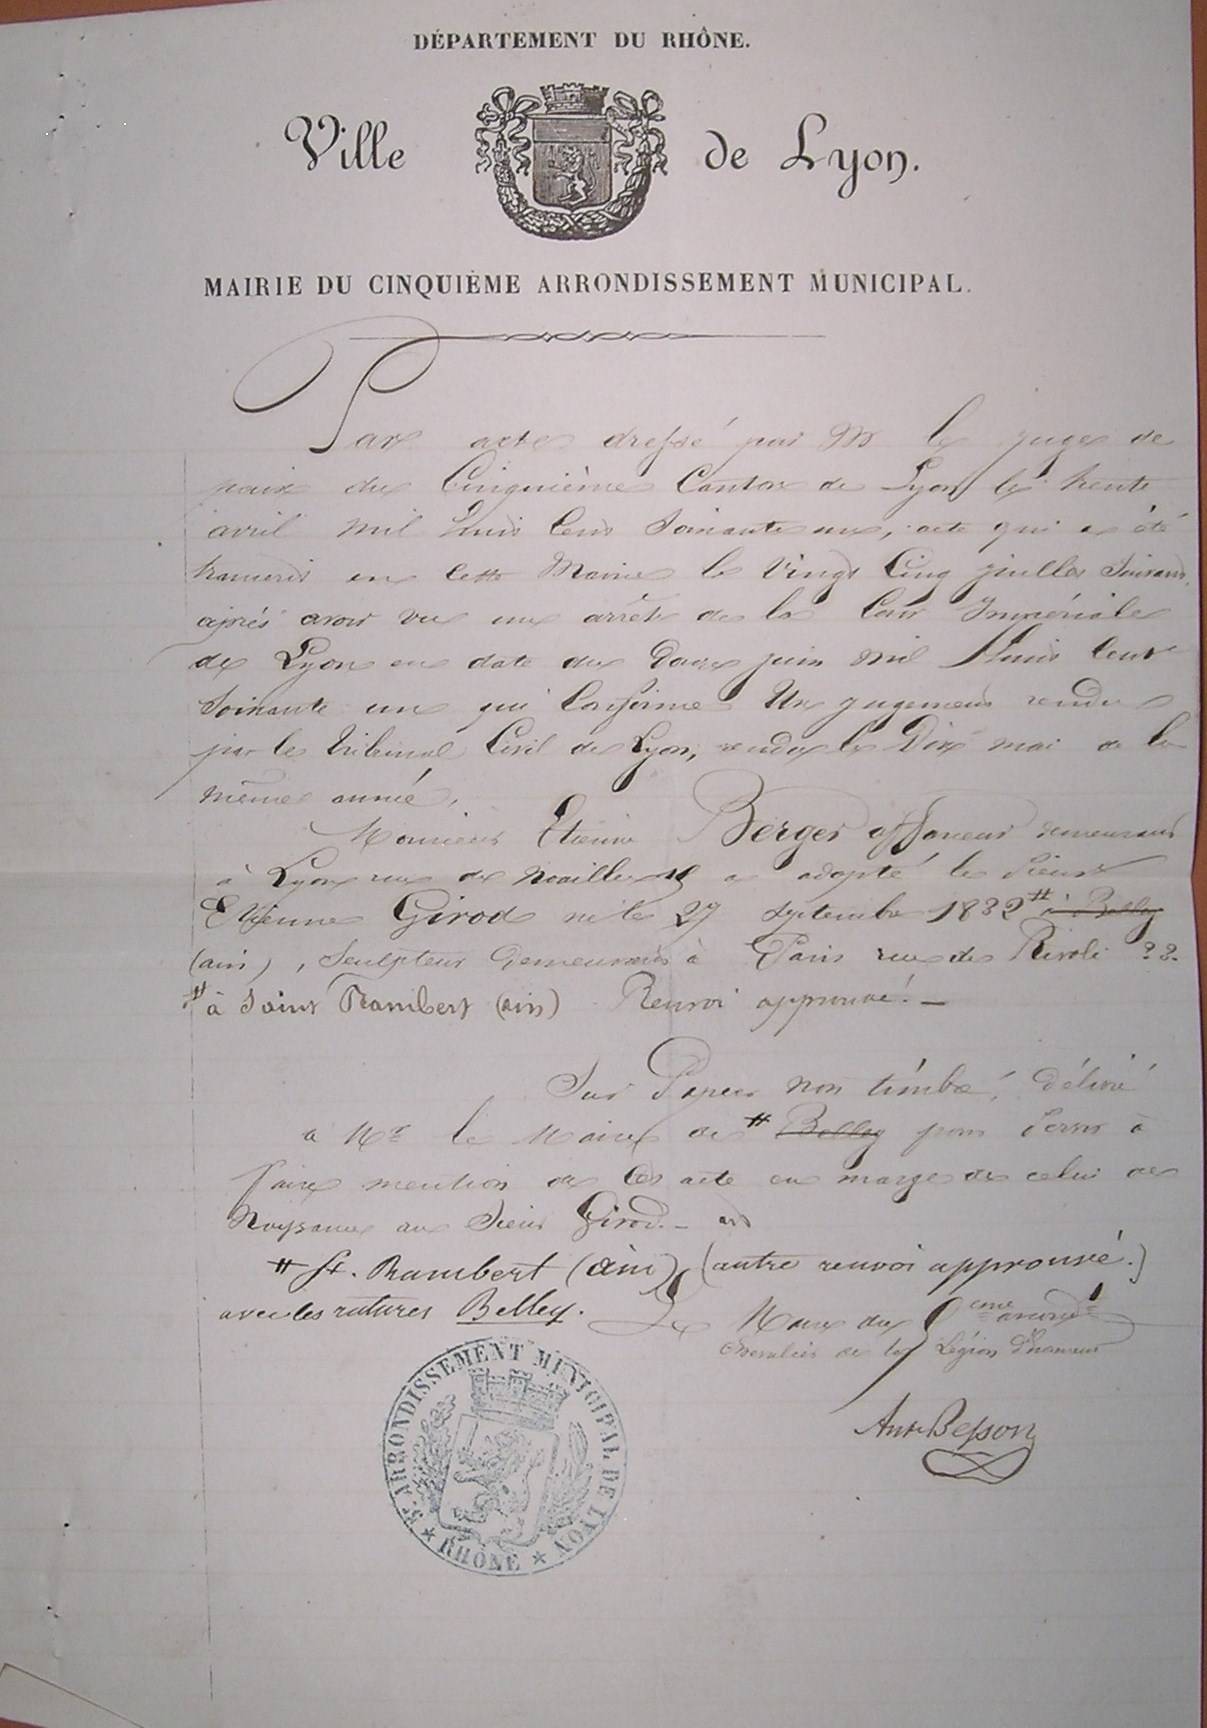 DÉPARTEMENT DU RHÔNE.
Ville de Lyon.
MAIRIE DU CINQUIÈME ARRONDISSEMENT MUNICIPAL.
Par acte dressé par Mr le juge de
paix du Cinquième Canton de Lyon le trente
avril mil huit Cent Soixante un, acte qui a été
transcrit en cette Mairie le Vingt Cinq juillet Suivant,
après avoir vu un arrêt de la Cour Impériale
de Lyon en date du Douze juin mil huit Cent
Soixante un qui Confirme Un jugement rendu
par le tribunal Civil de Lyon, rendu le Dix mai de la
même année,
Monsieur Etienne Berger affaneur demeurant
à Lyon rue de Noailles 15 a adopté le Sieur
Etienne Girod né le 27 Septembre 1832 # à Belley
(ain), Sculpteur Demeurant à Paris rue de Rivoli 22.
# à Saint Rambert (ain) Renvoi approuvé. —
Sur Papier non timbré, Délivré
a Mr le Maire de # Belley pour Servir à
faire mention de cet acte en marge de celui de
Naissance au Sieur Girod. —
# St. Rambert (ain) (autre renvoi approuvé.)
avec les ratures Belley.
Le Maire du 5eme arrondt
Chevalier de la Légion d'honneur
Ant. Besson
5e ARRONDISSEMENT MUNICIPAL DE LYON
★ RHÔNE ★